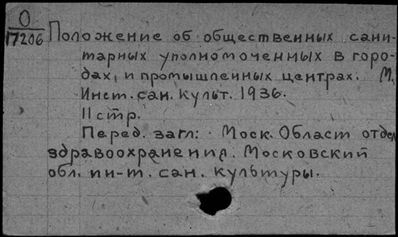 О
17206
Положение об общественных сани-
тарных уполномоченных в горо-
дах, и промышленных центрах. М,
Инст. сан. культ. 1936.
11 стр.
Перед. загл: Моск. Област отдел
здравоохранения. Московский
обл. ин-т. сан. культуры.